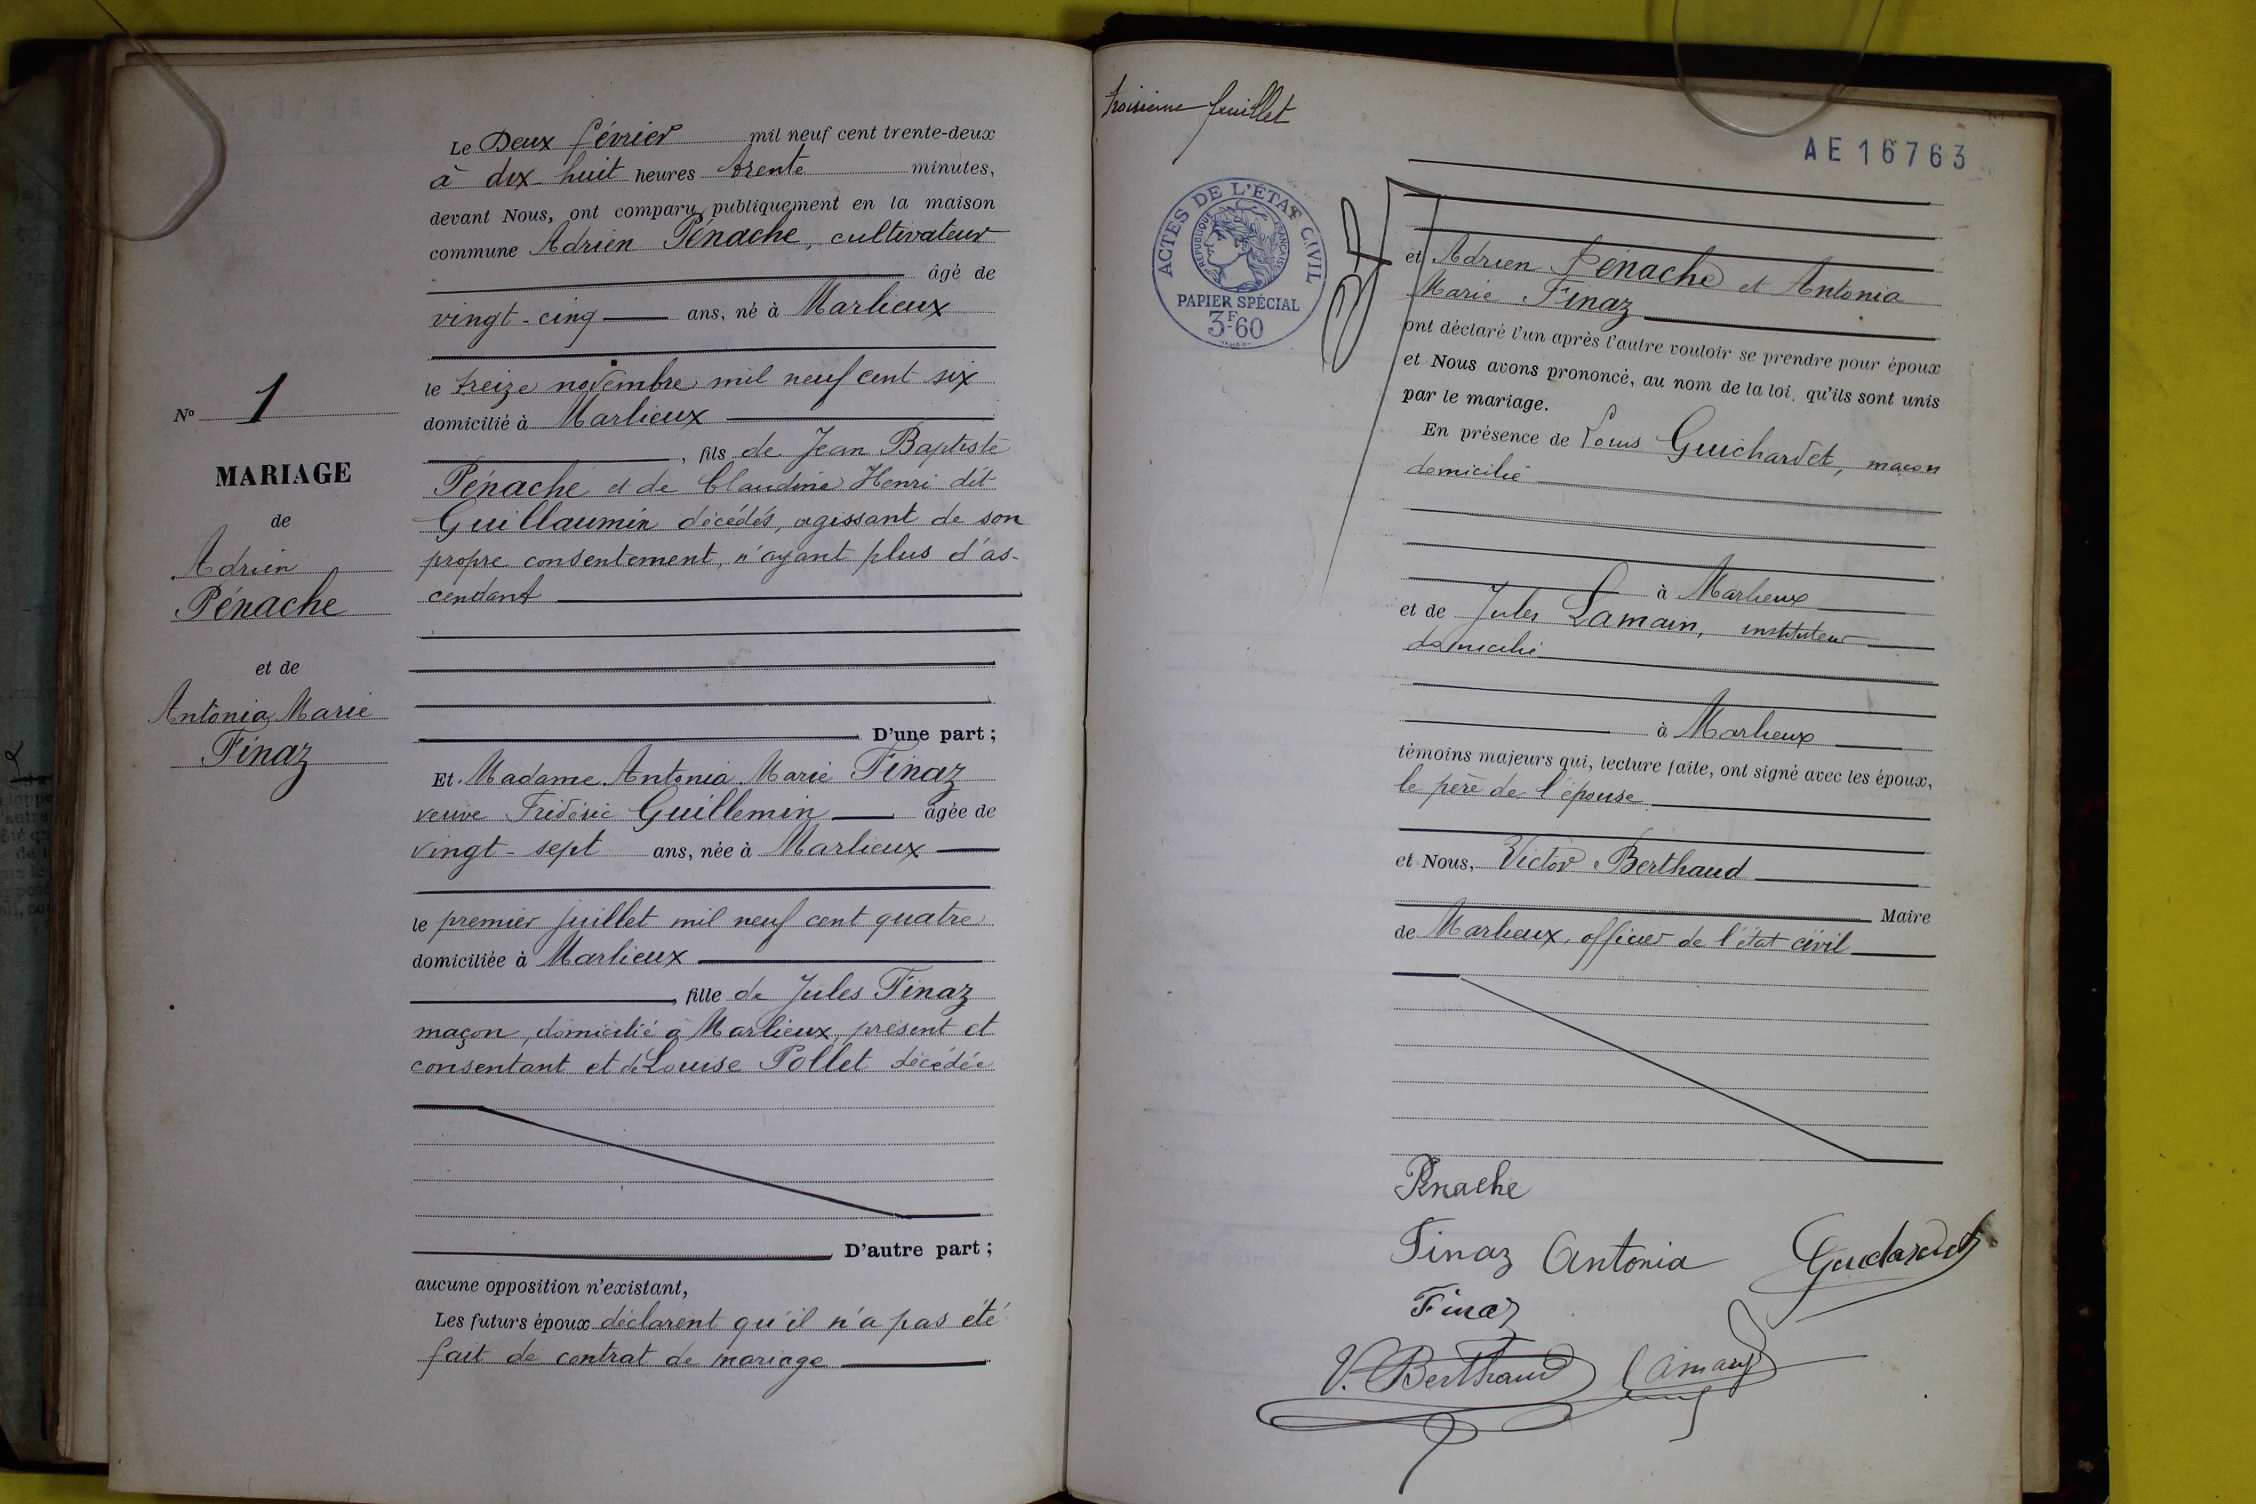 Le Deux février mil neuf cent trente-deux
à dix-huit heures trente minutes,
devant Nous, ont comparu publiquement en la maison
commune Adrien Pénache, cultivateur
âgé de
vingt-cinq ans, né à Marlieux
le treize novembre mil neuf cent six
domicilié à Marlieux
, fils de Jean Baptiste
Pénache et de Claudine Henri dit
Guillaumin décédés, agissant de son
propre consentement, n'ayant plus d'as-
cendant
D'une part ;
Et Madame Antonia Marie Finaz
veuve Frédéric Guillemin âgée de
vingt-sept ans, née à Marlieux
le premier juillet mil neuf cent quatre
domiciliée à Marlieux
, fille de Jules Finaz
maçon, domicilié à Marlieux, présent et
consentant et de Louise Pollet décédée
D'autre part ;
aucune opposition n'existant,
Les futurs époux déclarent qu'il n'a pas été
fait de contrat de mariage
N° 1
MARIAGE
de
Adrien
Pénache
et de
Antonia Marie
Finaz
troisième feuillet
AE16763
ACTES DE L'ÉTAT CIVIL
RÉPUBLIQUE FRANÇAISE
PAPIER SPÉCIAL
3F60
et Adrien Pénache et Antonia
Marie Finaz
ont déclaré l'un après l'autre vouloir se prendre pour époux
et Nous avons prononcé, au nom de la loi, qu'ils sont unis
par le mariage.
En présence de Louis Guichardet, maçon
domicilié
à Marlieux
et de Jules Lamain, instituteur
domicilié
à Marlieux
témoins majeurs qui, lecture faite, ont signé avec les époux,
le père de l'épouse
et Nous, Victor Berthaud
Maire
de Marlieux, officier de l'état civil
Pénache
Finaz Antonia
Guichardet
Finaz
V. Berthaud